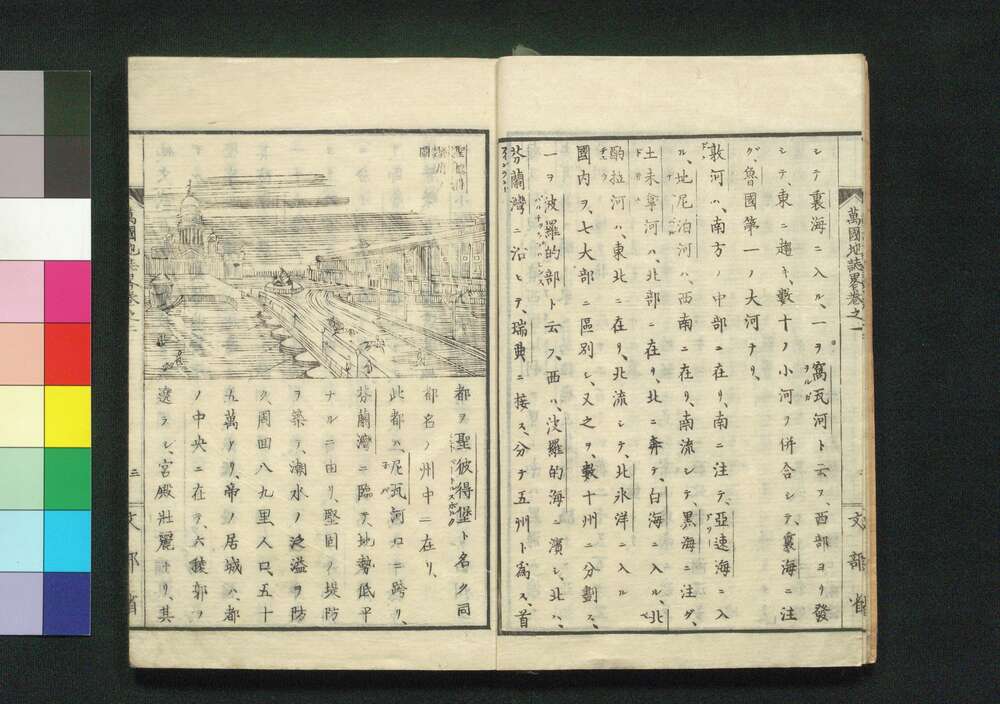 萬國地誌畧卷之一
文部省
シテ裏海ニ入ル、一ヲ窩瓦河ト云フ、西部ヨリ發
シテ、東ニ趨キ、數十ノ小河ヲ併合シテ、裏海ニ注
グ、魯國第一ノ大河ナリ、
敦河ハ、南方ノ中部ニ在リ、南ニ注テ、亞速海ニ入
ル、地尼泊河ハ、西南ニ在リ、南流シテ黒海ニ注グ、
土未寧河ハ、北部ニ在リ、北ニ奔テ、白海ニ入ル、北
酌拉河ハ、東北ニ在リ、北流シテ、北氷洋ニ入ル
國内ヲ、七大部ニ區別シ、又之ヲ、數十州ニ分劃ス、
一ヲ波羅的部ト云フ、西ハ、波羅的海ニ濱シ、北ハ、
芬蘭灣ニ沿ヒテ、瑞典ニ接ス、分テ五州ト爲ス、首
都ヲ聖彼得堡ト名ク同
都名ノ州中ニ在リ、
此都ハ、尼瓦河口ニ跨リ、
芬蘭灣ニ臨テ、地勢低平
ナルニ由リ、堅固ノ堤防
ヲ築テ、潮水ノ泛溢ヲ防
ク、周回八九里、人口、五十
五萬アリ、帝ノ居城ハ、都
ノ中央ニ在テ、六稜郭ヲ
遶ラシ、宮殿壯麗ナリ、其
三
文部省